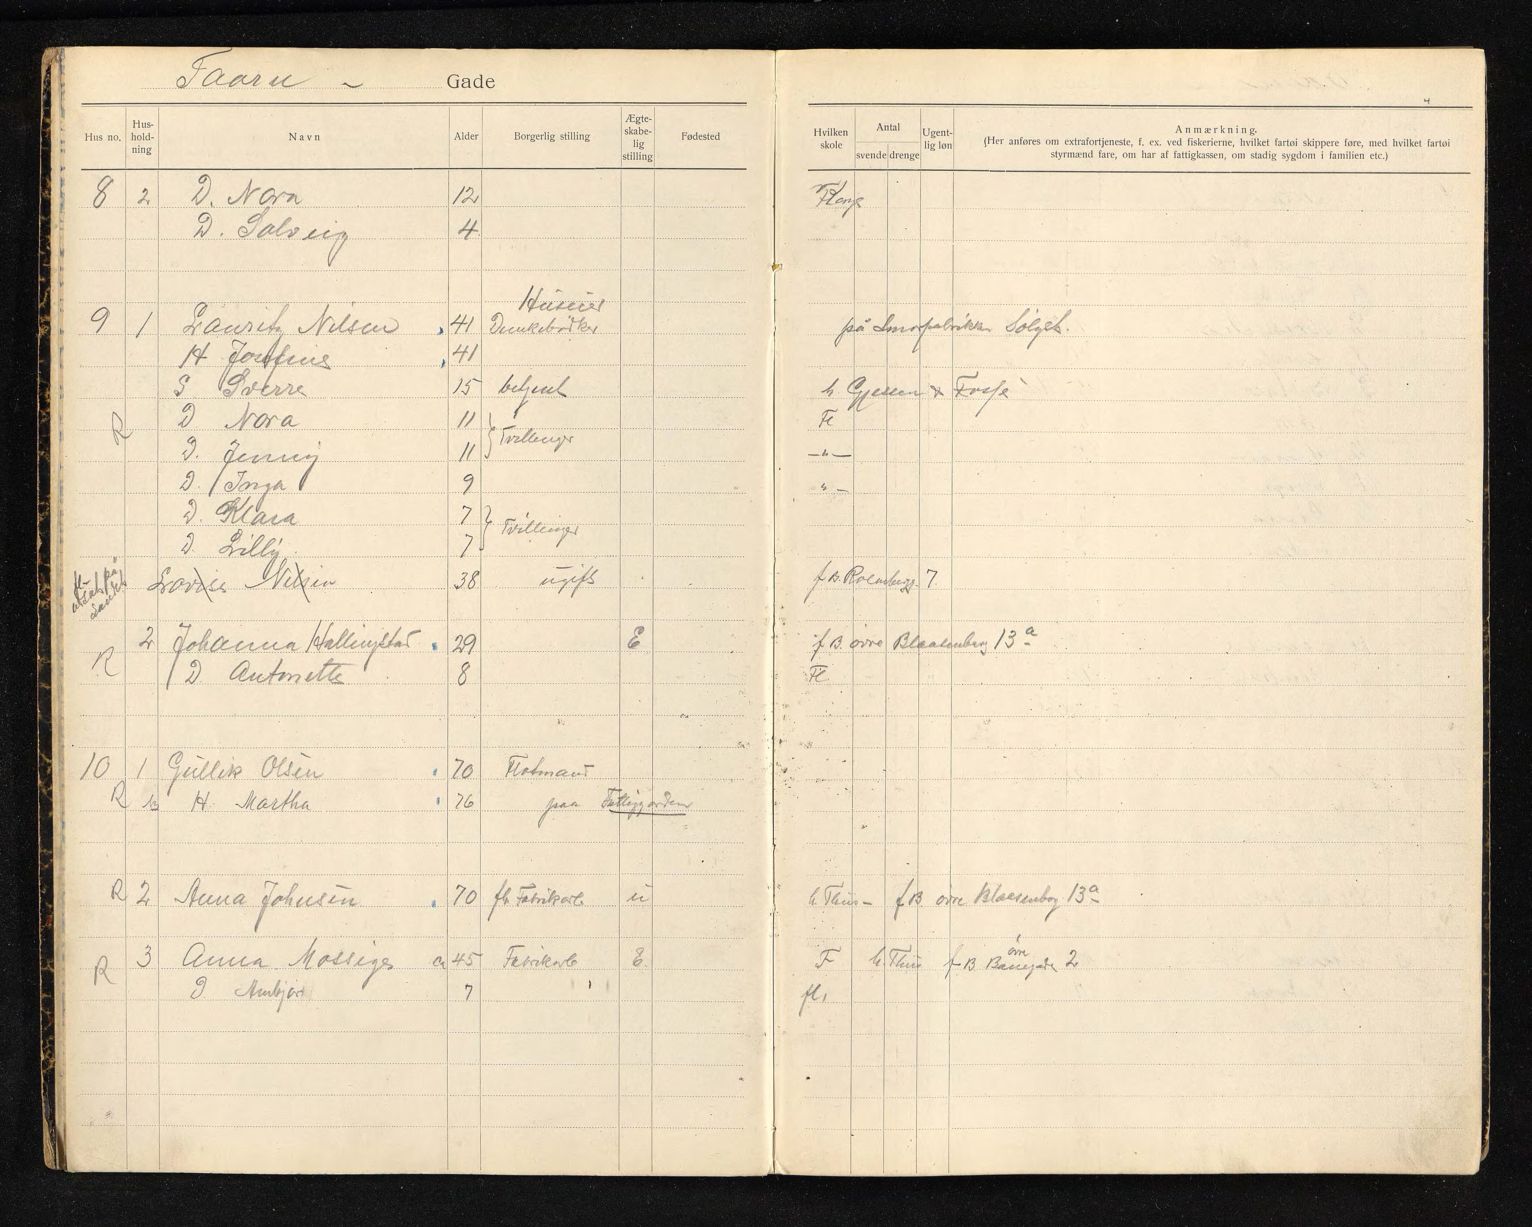 Faaru – Gade
Hus no. Hus-hold-ning Navn Alder Borgerlig stilling Ægte-skabe-lig stilling Fødested Hvilken skole Antal svende drenge Ugent-lig løn Anmærkning.
(Her anføres om extrafortjeneste, f. ex. ved fiskerierne, hvilket fartøi skippere føre, med hvilket fartøi
styrmænd fare, om har af fattigkassen, om stadig sygdom i familien etc.)
4
8 2 D. Nora 12
D. Solveig 4
Huseier
9 1 Lauritz Nilsen 41 Dunkebødker på Smørfabrikken Sølyst.
H Josefine 41
S Sverre 15 betjent h. Gjesen & Fosse
R D Nora 11 Tvillinger Fl
D. Jenny 11 –"–
D. Inga 9 " –
D. Klara 7 Tvillinger
D. Lilly 7
Lovise Nilsen 38 ugift f B. Rosenbergg 7
R 2 Johanna Hallingstad 29 E f B. øvre Blaasenborg 13a
D Antonette 8 Fl
10 1 Gullik Olsen 70 Flotmand
R H. Martha 76 paa Fattiggården
R 2 Anna Johnsen 70 fh Fabrikarb u h Thus – f B øvre Blaasenborg 13a
R 3 Anna Mossiges ca 45 Fabrikarb E. F h. Thus f B øvre Banegaden 2
D Ambjør 7 fl.